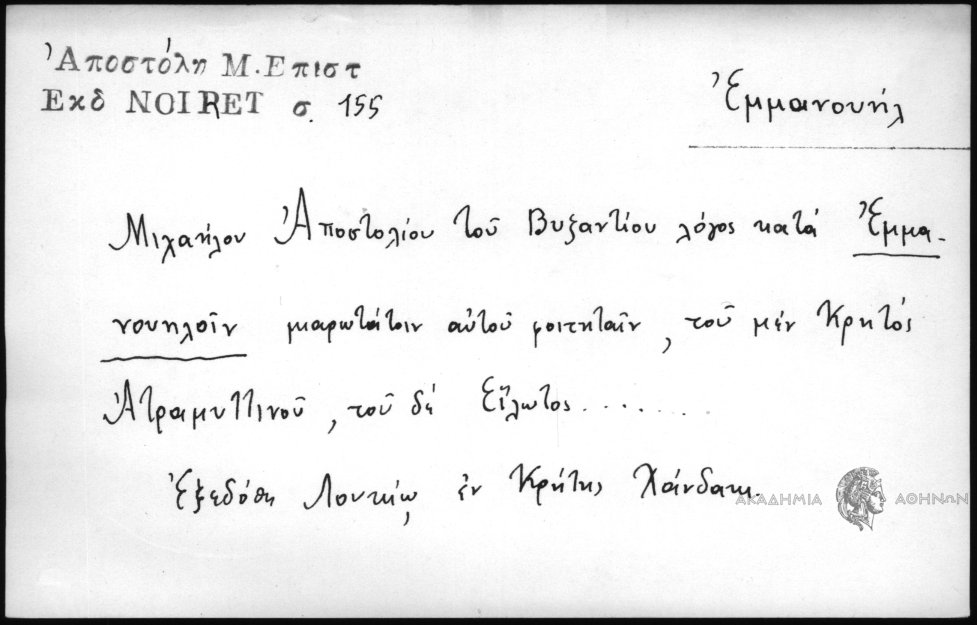 Ἀποστόλη Μ. Επιστ
Εκδ NOIRET σ. 155
Ἐμμανουήλ
Μιχαήλου Ἀποστολίου τοῦ Βυζαντίου λόγος κατά Ἐμμα-
νουηλοῖν μιαρωτάτοιν αὐτοῦ φοιτηταῖν, τοῦ μέν Κρητός
Ἀτραμυττινοῦ, τοῦ δέ Εἵλωτος........
Ἐξεδόθη ἐν Κρήτης Χάνδακι.
ΑΚΑΔΗΜΙΑ ΑΘΗΝΩΝ